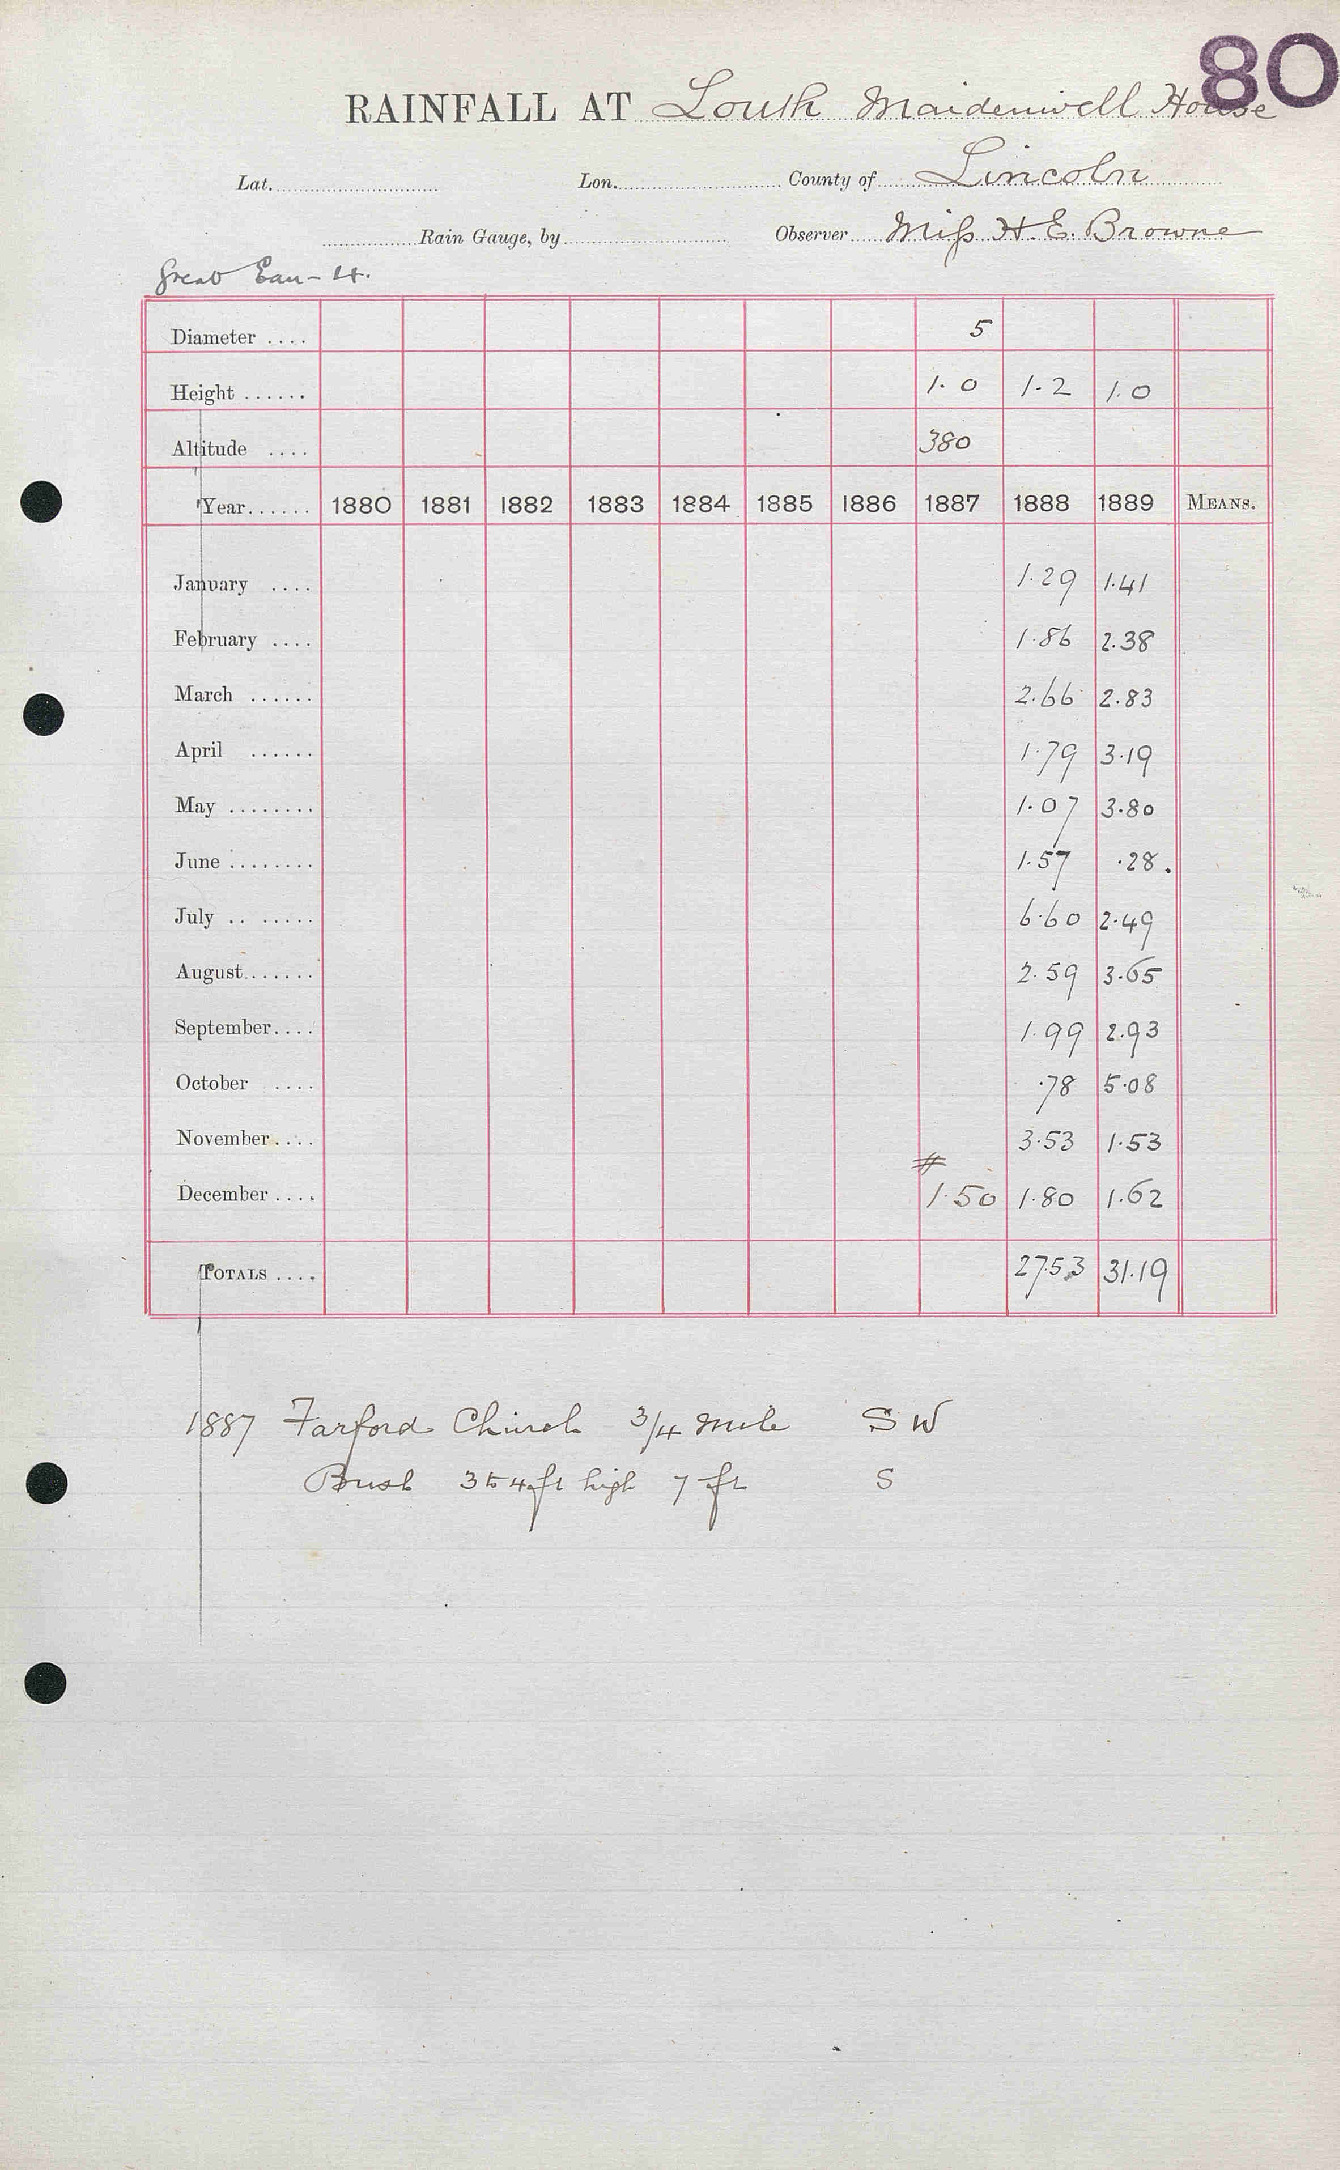 80
RAINFALL AT Louth Maidenwell House
Lat. Lon. County of Lincoln
Rain Gauge, by Observer Miss H. E. Browne
Great Eau - 14.
Diameter .... 5
Height ...... 1.0 1.2 1.0
Altitude .... 380
Year...... 1880 1881 1882 1883 1884 1885 1886 1887 1888 1889 MEANS.
January .... 1.29 1.41
February .... 1.86 2.38
March ...... 2.66 2.83
April ...... 1.79 3.19
May ........ 1.07 3.80
June ........ 1.57 .28.
July .. ...... 6.60 2.49
August....... 2.59 3.65
September.... 1.99 2.93
October .... .78 5.08
November.... 3.53 1.53
December .... 1.50 1.80 1.62
TOTALS .... 27.53 31.19
1887 Farford Church 3/4 mile S W
Bush 3 to 4 ft high 7 ft S